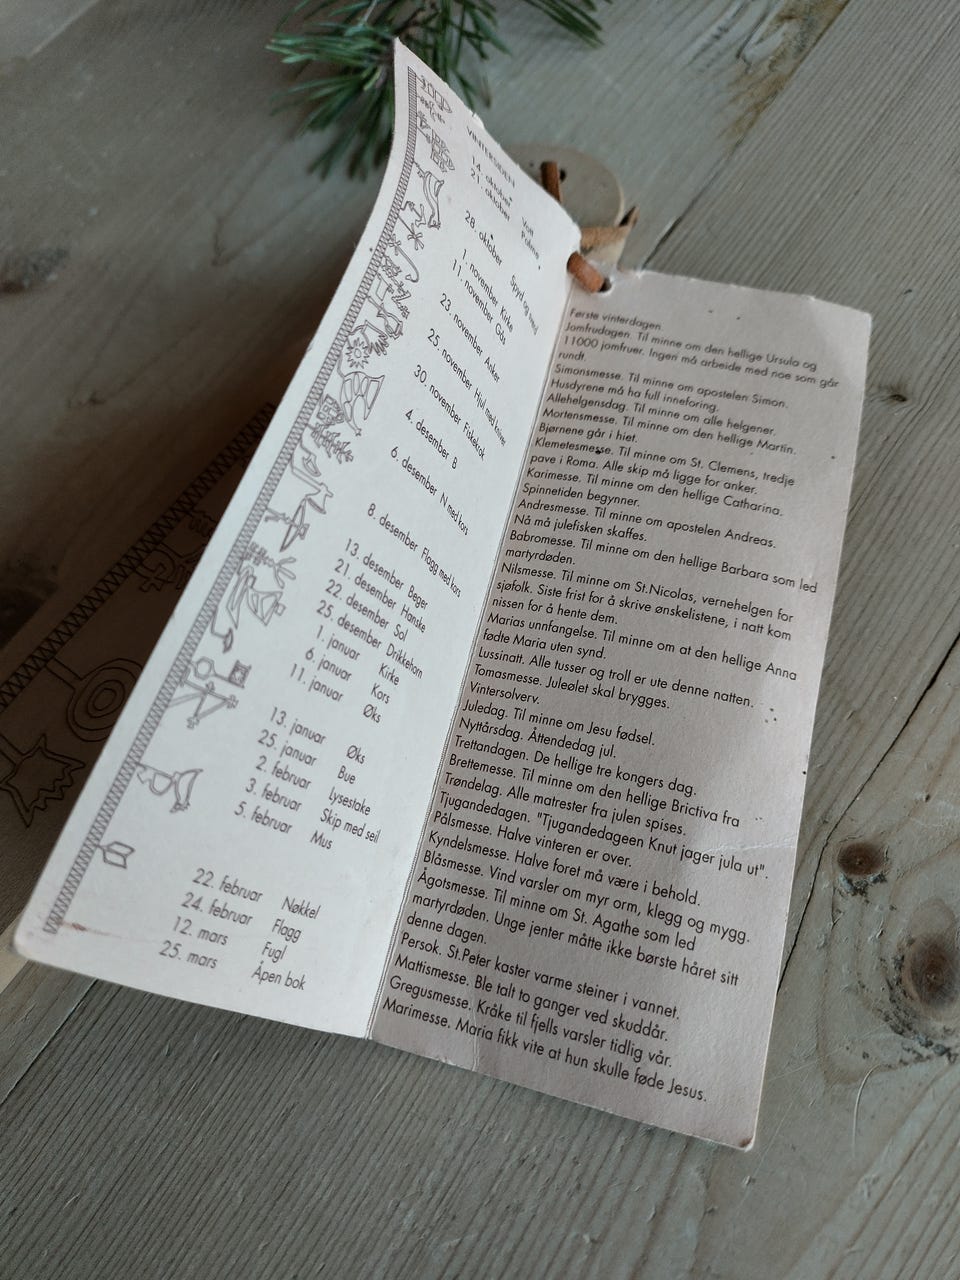 VINTERSIDEN
14. oktober Vott
21. oktober Palme
28. oktober Spyd og sverd
1. november Kirke
11. november Gås
23. november Anker
25. november Hjul med kniver
30. november Fiskekrok
4. desember B
6. desember N med kors
8. desember Flagg med kors
13. desember Beger
21. desember Hanske
22. desember Sol
25. desember Drikkehorn
1. januar Kirke
6. januar Kors
11. januar Øks
13. januar Øks
25. januar Bue
2. februar Lysestake
3. februar Skip med seil
5. februar Mus
22. februar Nøkkel
24. februar Flagg
12. mars Fugl
25. mars Åpen bok
Første vinterdagen.
Jomfrudagen. Til minne om den hellige Ursula og
11000 jomfruer. Ingen må arbeide med noe som går
rundt.
Simonsmesse. Til minne om apostelen Simon.
Husdyrene må ha full innefôring.
Allehelgensdag. Til minne om alle helgener.
Mortensmesse. Til minne om den hellige Martin.
Bjørnene går i hiet.
Klemetesmesse. Til minne om St. Clemens, tredje
pave i Roma. Alle skip må ligge for anker.
Karimesse. Til minne om den hellige Catharina.
Spinnetiden begynner.
Andresmesse. Til minne om apostelen Andreas.
Nå må julefisken skaffes.
Babromesse. Til minne om den hellige Barbara som led
martyrdøden.
Nilsmesse. Til minne om St.Nicolas, vernehelgen for
sjøfolk. Siste frist for å skrive ønskelistene, i natt kom
nissen for å hente dem.
Marias unnfangelse. Til minne om at den hellige Anna
fødte Maria uten synd.
Lussinatt. Alle tusser og troll er ute denne natten.
Tomasmesse. Juleølet skal brygges.
Vintersolverv.
Juledag. Til minne om Jesu fødsel.
Nyttårsdag. Åttendedag jul.
Trettandagen. De hellige tre kongers dag.
Brettemesse. Til minne om den hellige Brictiva fra
Trøndelag. Alle matrester fra julen spises.
Tjugandedagen. "Tjugandedageen Knut jager jula ut".
Pålsmesse. Halve vinteren er over.
Kyndelsmesse. Halve foret må være i behold.
Blåsmesse. Vind varsler om myr orm, klegg og mygg.
Ågotsmesse. Til minne om St. Agathe som led
martyrdøden. Unge jenter måtte ikke børste håret sitt
denne dagen.
Persok. St.Peter kaster varme steiner i vannet.
Mattismesse. Ble talt to ganger ved skuddår.
Gregusmesse. Kråke til fjells varsler tidlig vår.
Marimesse. Maria fikk vite at hun skulle føde Jesus.